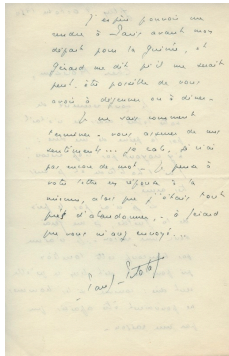 J'espère pouvoir me
rendre à Paris avant mon
départ pour la Guinée, et
Gérard me dit qu'il me serait
peut-être possible de vous
avoir à déjeuner ou à dîner.
Je ne sais comment
terminer - vous assurer de mes
sentiments... je n'ai
pas encore de mot. Je pense à
votre lettre en réponse à la
mienne, alors que j'étais tout
prêt d'abandonner - à Gérard
que vous m'avez envoyé.